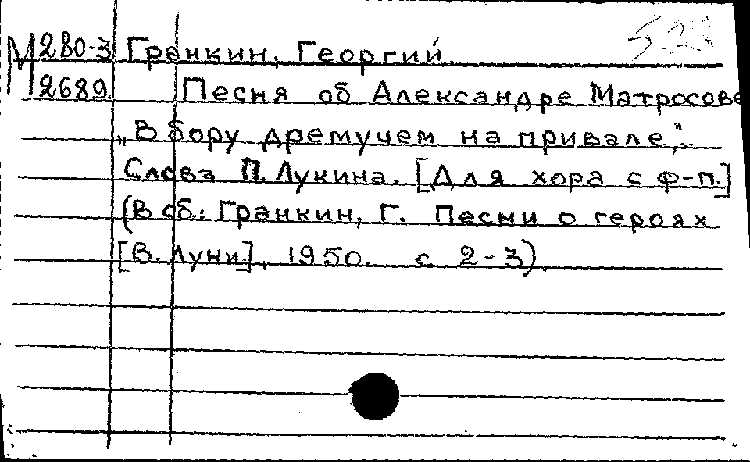 М 280-3 Гранкин, Георгий.
2689 Песня об Александре Матросове
„В бору дремучем на привале,"
Слова П. Лукина. [Для хора с ф-п.]
(В сб: Гранкин, Г. Песни о героях
[В. Луки], 1950. с 2-3)